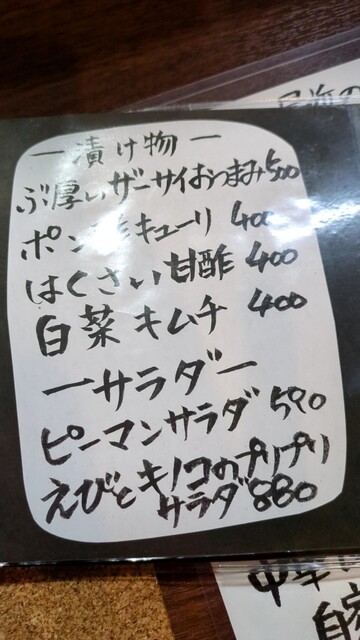 ー漬け物ー
ぶ厚いザーサイおつまみ500
ポン酢キューリ 400
はくさい甘酢 400
白菜キムチ 400
ーサラダー
ピーマンサラダ 590
えびとキノコのプリプリ
サラダ 880